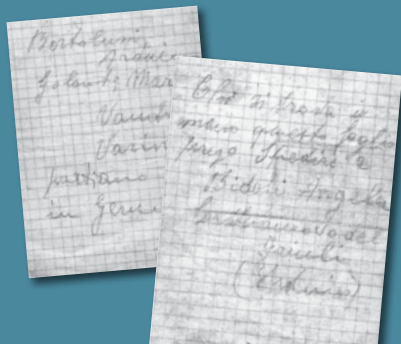 Bortolussi
Galant: Mar
Vand
Varin
partiamo
in Germ
Chi si trova in
mano questo foglio
prego Spedire a
Bideri Angela
Castelnuovo del
Friuli
(Udine)